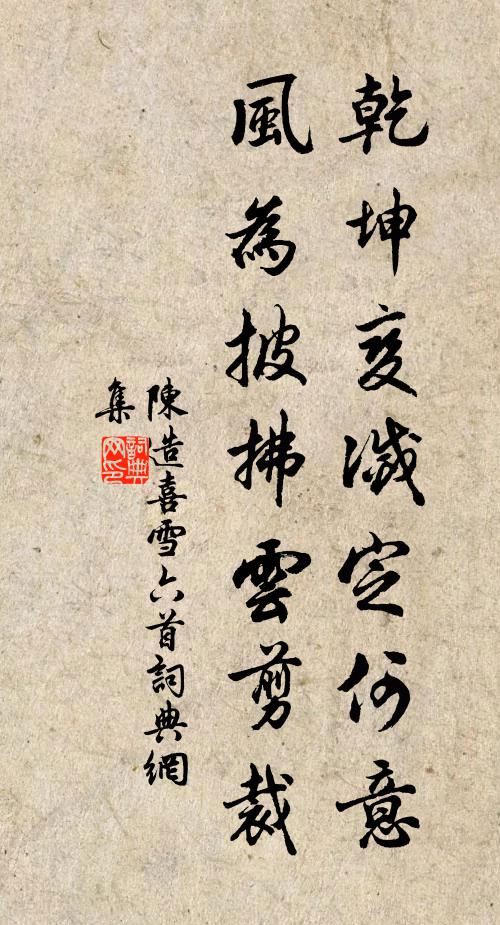 乾坤变滅定何意
風為披拂雲剪裁
陳造喜雪六首詞典網
集
詞典
网印